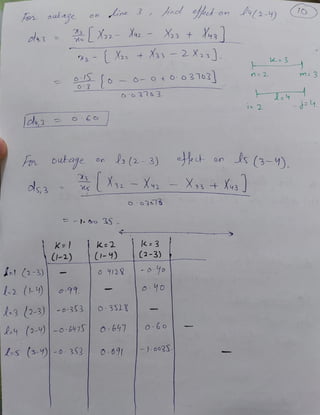 For outage on line 3, find effect on l4(2-4)
10
d4,3 = x3/x4 [X22 - X42 - X23 + X43]
x3 - [X22 + X33 - 2X23]
= 0.15/0.3 [0 - 0 - 0 + 0.03703]
0.03703
k=3
n=2 m=3
l=4
i=2 j=4
d4,3 = 0.60
For outage on l3(2-3) effect on l5(3-4).
d5,3 = x3/x5 [X32 - X42 - X33 + X43]
= -1.0035.
k=1 k=2 k=3
(1-2) (1-4) (2-3)
l=1 (2-3) - 0.4128 -0.40
l=2 (1-4) 0.99 - 0.40
l=3 (2-3) -0.353 0.3528 -
l=4 (2-4) -0.6475 0.647 0.60 -
l=5 (3-4) -0.353 0.691 -1.0035 -